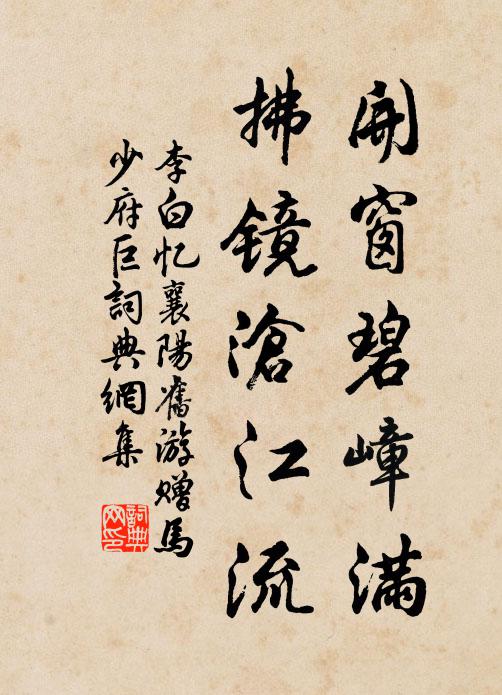 開窗碧嶂滿
拂鏡滄江流
李白忆襄陽舊游贈馬
少府巨詞典網集
詞典網印